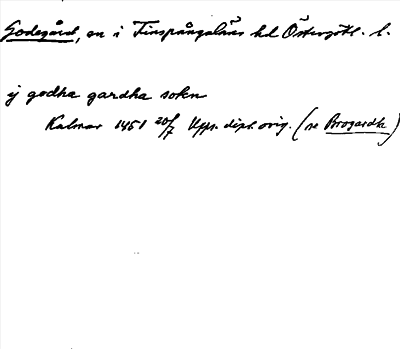 Godegård, sn i Finspångaläns hd Östergötl. l.
j godha gardha sokn
Kalmar 1451 20/7 Upps. dipl. orig. (se Brogardh)